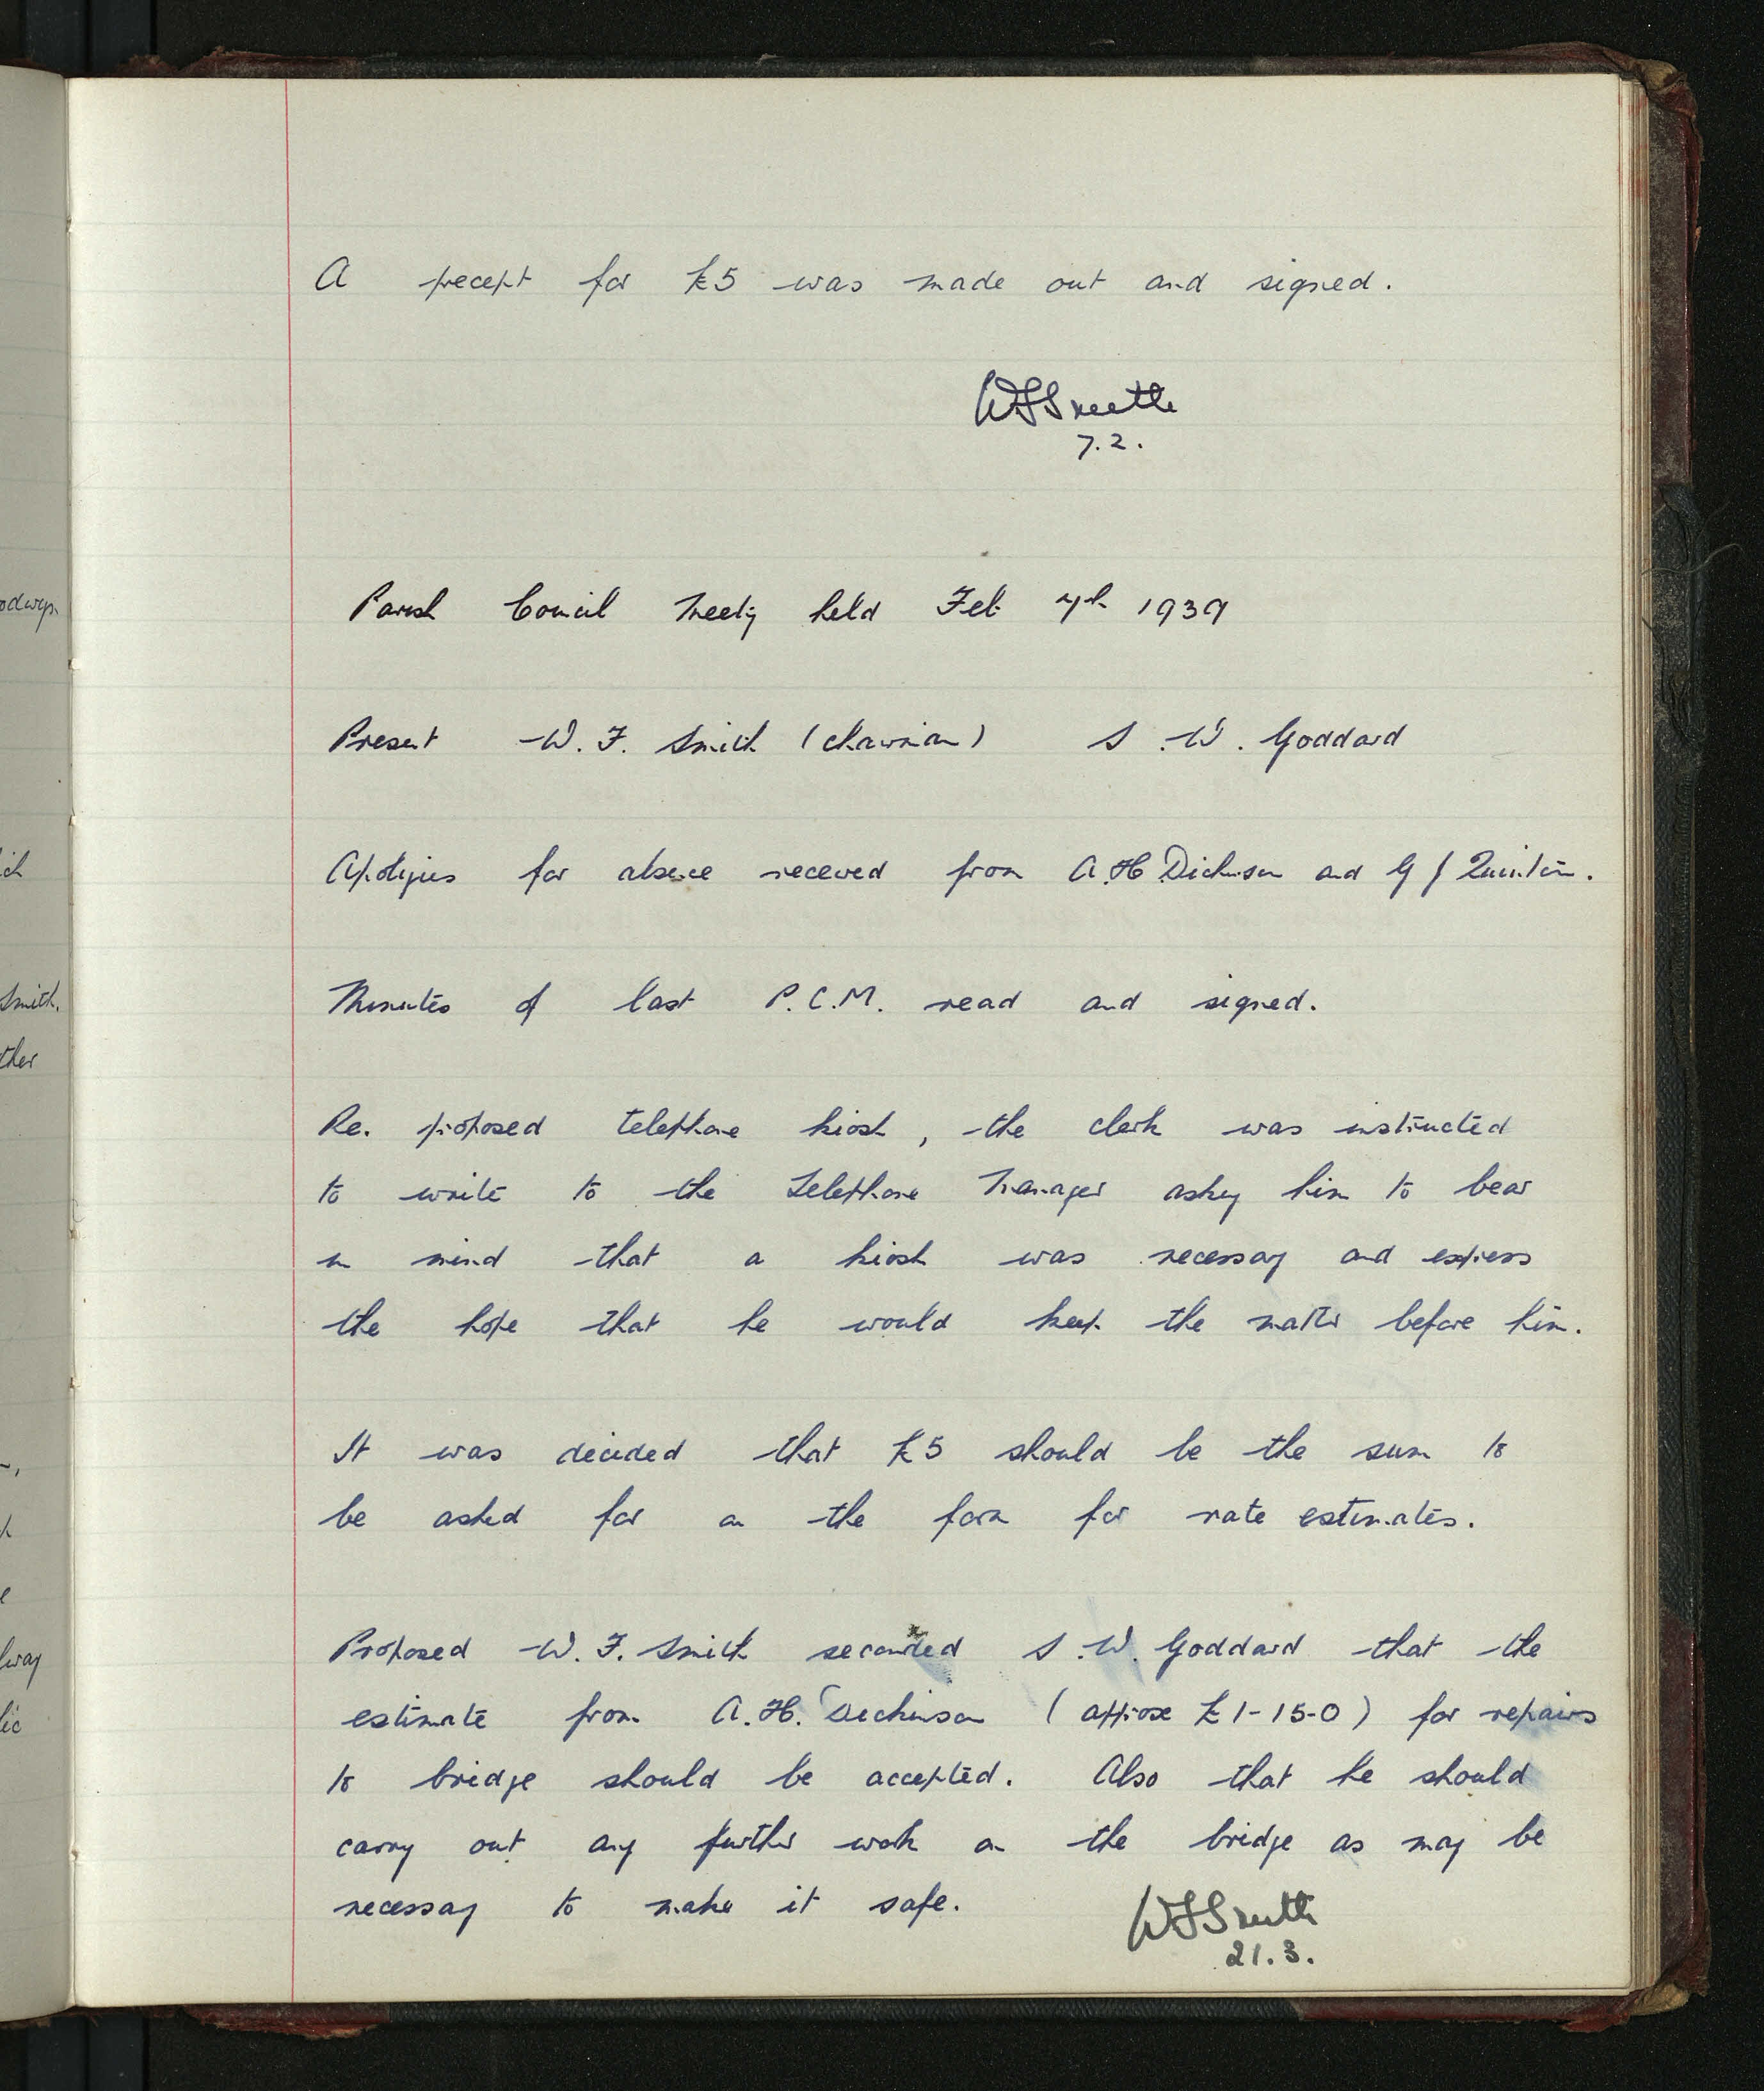 A precept for £5 was made out and signed.
WFSmith
7.2.
Parish Council Meeting held Feb 7th 1939
Present W. F. Smith (chairman) S. W. Goddard
Apologies for absence received from A. H. Dickinson and G J Quinton.
Minutes of last P.C.M. read and signed.
Re. proposed telephone kiosk, the clerk was instructed
to write to the Telephone Manager asking him to bear
in mind that a kiosk was necessary and express
the hope that he would keep the matter before him.
It was decided that £5 should be the sum to
be asked for on the form for rate estimates.
Proposed W. F. Smith seconded S. W. Goddard that the
estimate from A. H. Dickinson (approx £1-15-0) for repairs
to bridge should be accepted. Also that he should
carry out any further work on the bridge as may be
necessary to make it safe.
WFSmith
21.3.